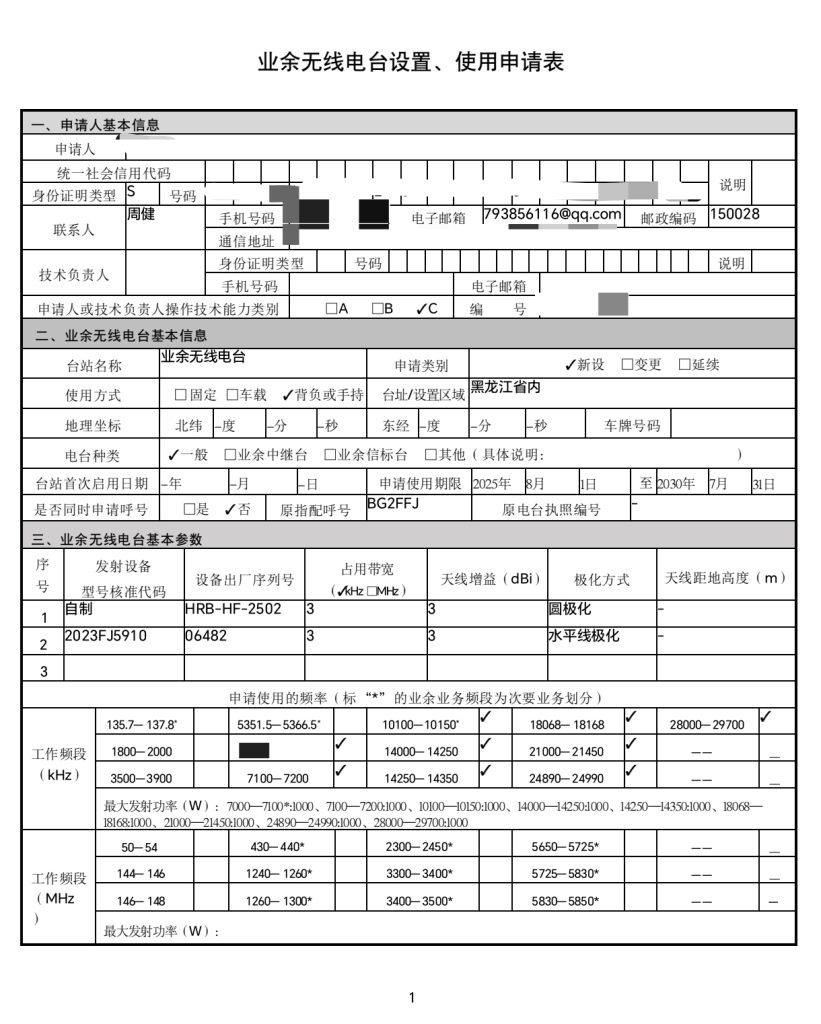 业余无线电台设置、使用申请表
一、申请人基本信息
申请人
统一社会信用代码 说明
身份证明类型 S 号码
联系人 周健 手机号码 电子邮箱 793856116@qq.com 邮政编码 150028
通信地址
技术负责人 身份证明类型 号码 说明
手机号码 电子邮箱
申请人或技术负责人操作技术能力类别 □A □B ✓C 编 号
二、业余无线电台基本信息
台站名称 业余无线电台 申请类别 ✓新设 □变更 □延续
使用方式 □固定 □车载 ✓背负或手持 台址/设置区域 黑龙江省内
地理坐标 北纬 –度 –分 –秒 东经 –度 –分 –秒 车牌号码
电台种类 ✓一般 □业余中继台 □业余信标台 □其他（具体说明： ）
台站首次启用日期 –年 –月 –日 申请使用期限 2025年 8月 1日 至 2030年 7月 31日
是否同时申请呼号 □是 ✓否 原指配呼号 BG2FFJ 原电台执照编号 –
三、业余无线电台基本参数
序号 发射设备型号核准代码 设备出厂序列号 占用带宽（✓kHz □MHz） 天线增益（dBi） 极化方式 天线距地高度（m）
1 自制 HRB-HF-2502 3 3 圆极化 –
2 2023FJ5910 06482 3 3 水平线极化 –
3
申请使用的频率（标“*”的业余业务频段为次要业务划分）
工作频段（kHz）
135.7—137.8* 5351.5—5366.5* 10100—10150* ✓ 18068—18168 ✓ 28000—29700 ✓
1800—2000 ✓ 14000—14250 ✓ 21000—21450 ✓ —— —
3500—3900 7100—7200 ✓ 14250—14350 ✓ 24890—24990 ✓ —— —
最大发射功率（W）：7000—7100*:1000、7100—7200:1000、10100—10150:1000、14000—14250:1000、14250—14350:1000、18068—
18168:1000、21000—21450:1000、24890—24990:1000、28000—29700:1000
工作频段（MHz）
50—54 430—440* 2300—2450* 5650—5725* —— —
144—146 1240—1260* 3300—3400* 5725—5830* —— —
146—148 1260—1300* 3400—3500* 5830—5850* —— —
最大发射功率（W）：
1